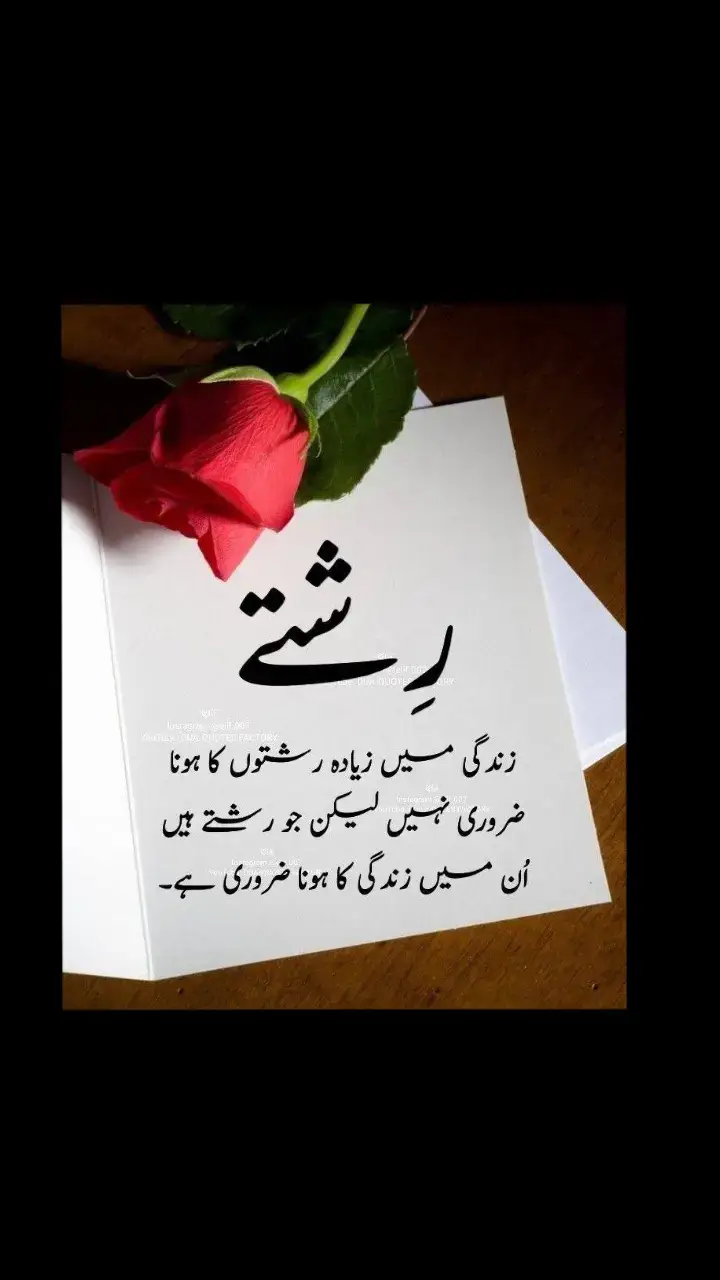 رِشتے
زندگی میں زیادہ رشتوں کا ہونا
ضروری نہیں لیکن جو رشتے ہیں
اُن میں زندگی کا ہونا ضروری ہے۔